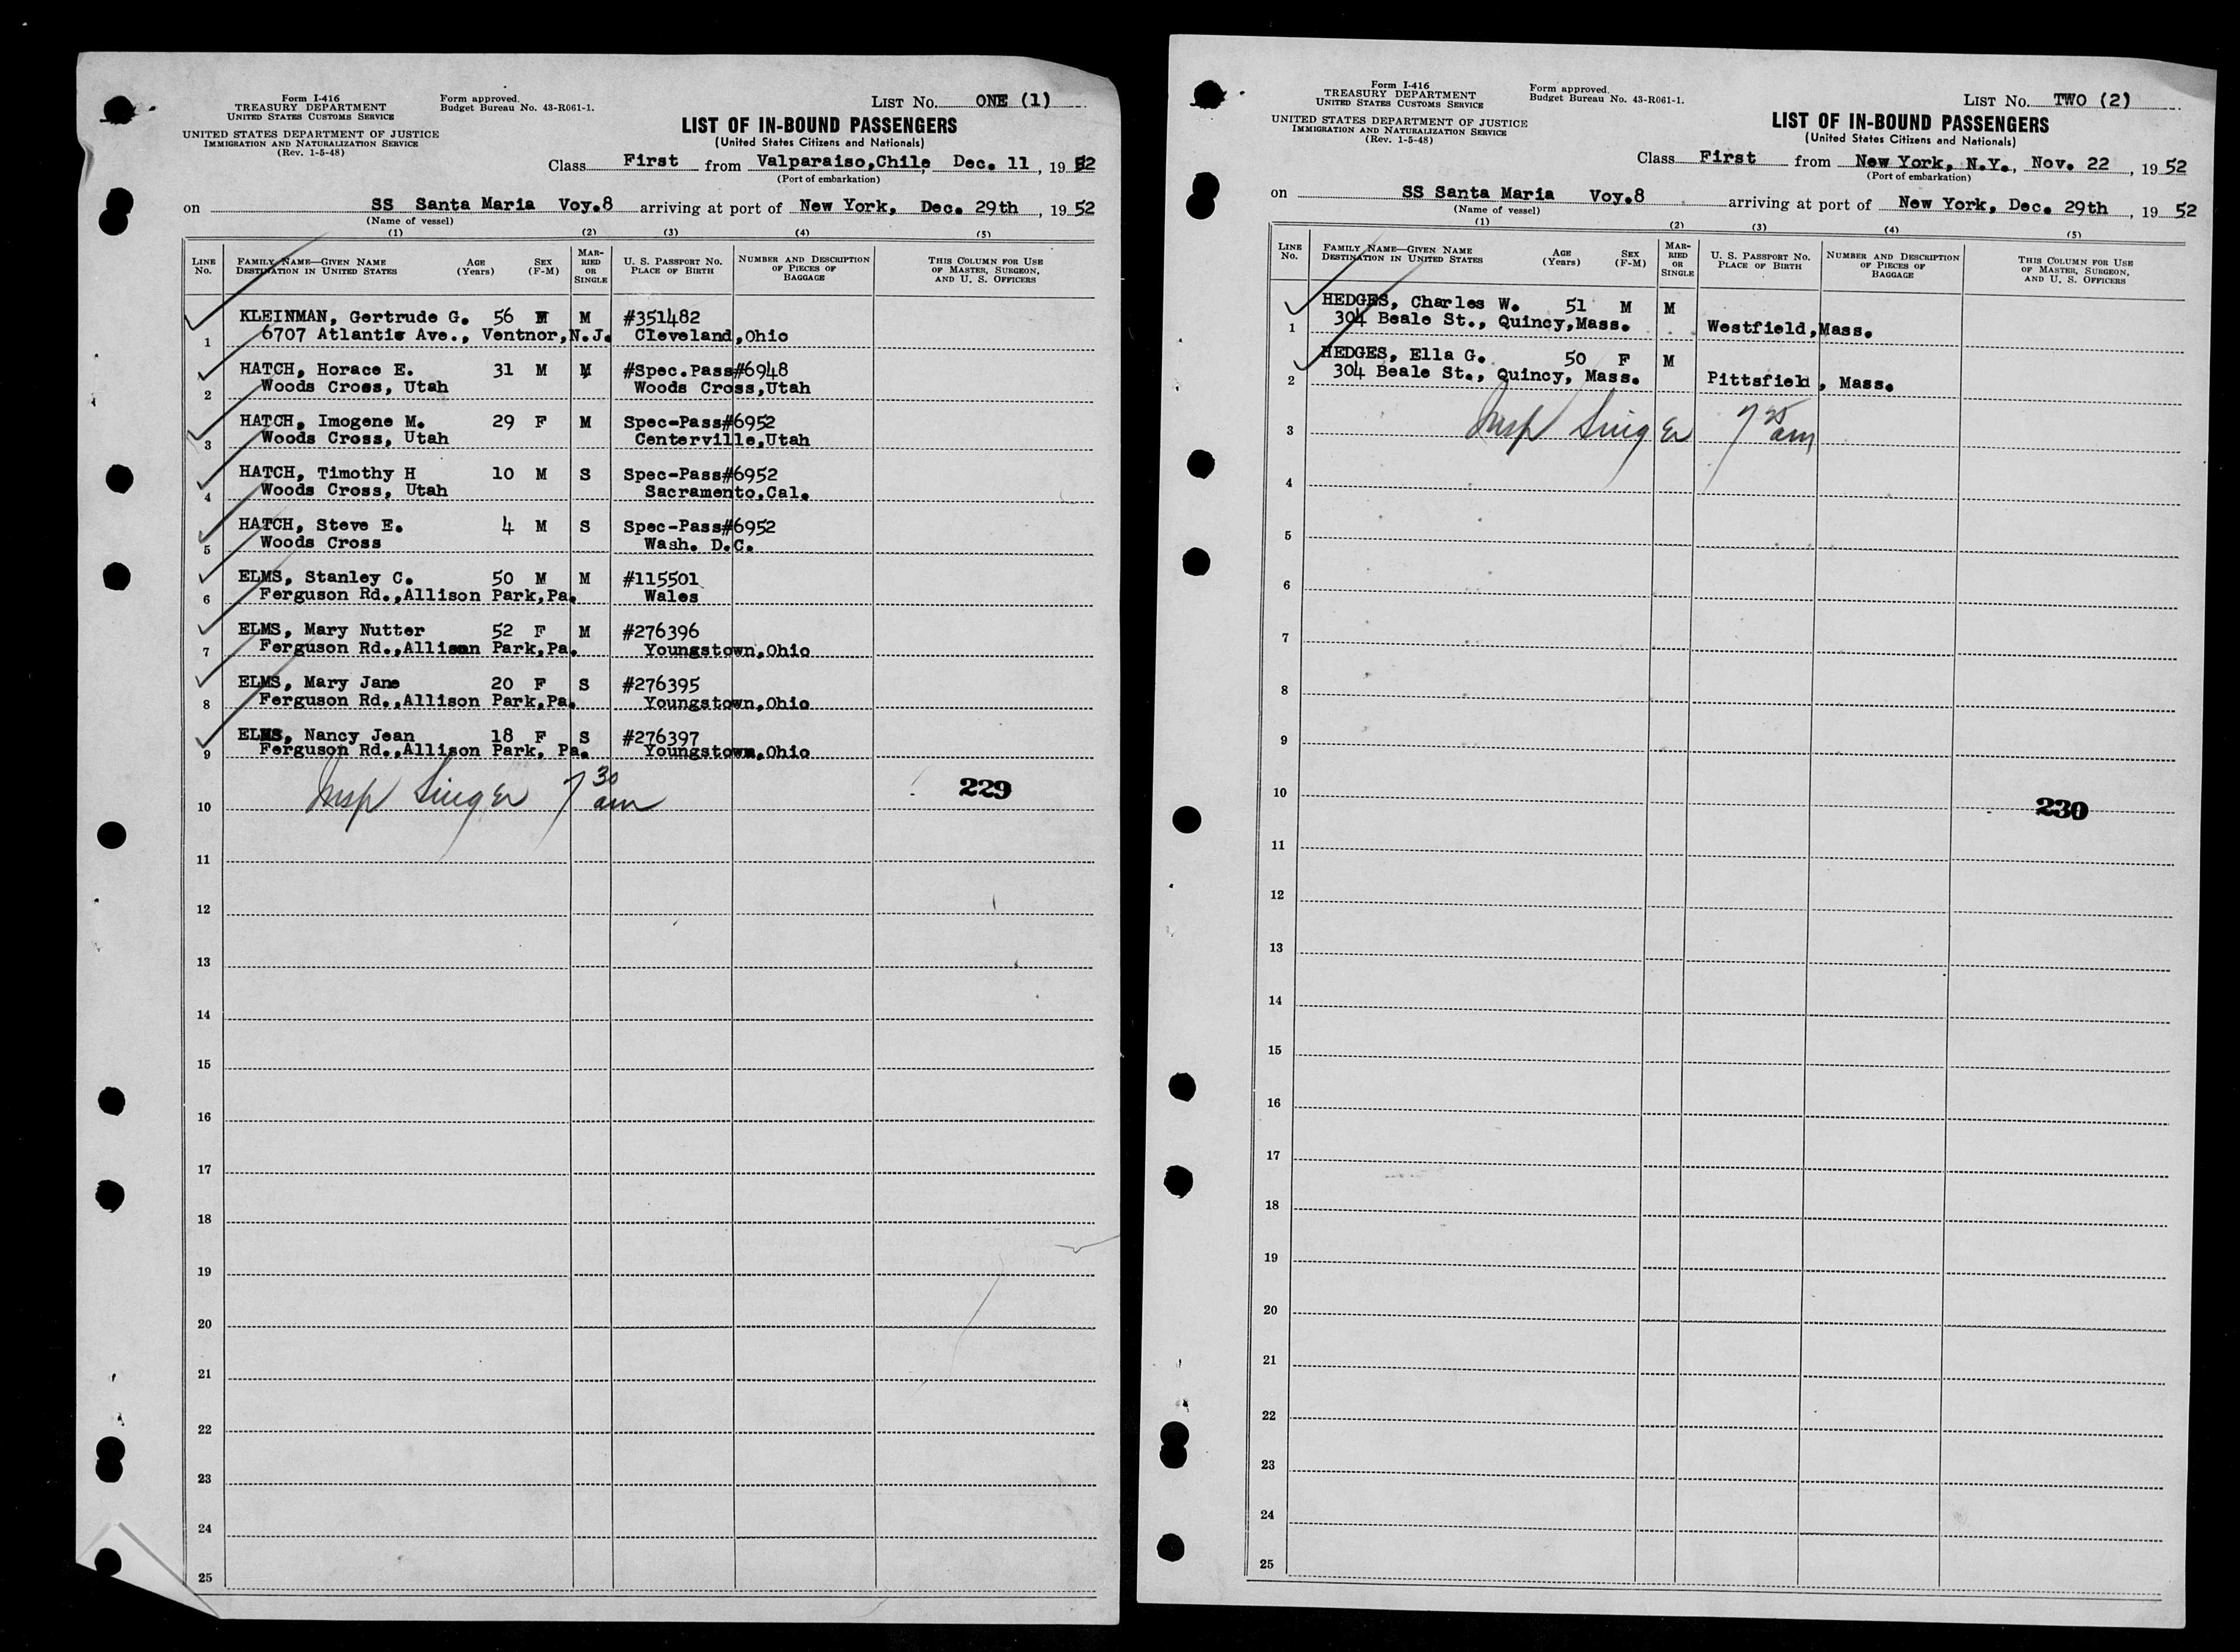 Form I-416
TREASURY DEPARTMENT
UNITED STATES CUSTOMS SERVICE
UNITED STATES DEPARTMENT OF JUSTICE
IMMIGRATION AND NATURALIZATION SERVICE
(Rev. 1-5-48)
Form approved.
Budget Bureau No. 43-R061-1.
LIST NO. ONE (1)
LIST OF IN-BOUND PASSENGERS
(United States Citizens and Nationals)
Class First from Valparaiso,Chile, Dec. 11, 1952
(Port of embarkation)
on SS Santa Maria Voy.8 arriving at port of New York, Dec. 29th, 1952
(Name of vessel)
(1) (2) (3) (4) (5)
LINE NO. FAMILY NAME—GIVEN NAME DESTINATION IN UNITED STATES AGE (Years) SEX (F-M) MARRIED OR SINGLE U. S. PASSPORT NO. PLACE OF BIRTH NUMBER AND DESCRIPTION OF PIECES OF BAGGAGE THIS COLUMN FOR USE OF MASTER, SURGEON, AND U. S. OFFICERS
KLEINMAN, Gertrude G. 56 M #351482
1 6707 Atlantic Ave., Ventnor,N.J. Cleveland,Ohio
HATCH, Horace E. 31 M M #Spec.Pass#6948
2 Woods Cross, Utah Woods Cross,Utah
HATCH, Imogene M. 29 F M Spec-Pass#6952
3 Woods Cross, Utah Centerville,Utah
HATCH, Timothy H 10 M S Spec-Pass#6952
4 Woods Cross, Utah Sacramento,Cal.
HATCH, Steve E. 4 M S Spec-Pass#6952
5 Woods Cross Wash. D.C.
ELMS, Stanley C. 50 M M #115501
6 Ferguson Rd.,Allison Park,Pa. Wales
ELMS, Mary Nutter 52 F M #276396
7 Ferguson Rd.,Allison Park,Pa. Youngstown,Ohio
ELMS, Mary Jane 20 F S #276395
8 Ferguson Rd.,Allison Park,Pa. Youngstown,Ohio
ELMS, Nancy Jean 18 F S #276397
9 Ferguson Rd.,Allison Park, Pa. Youngstown,Ohio
10 Insp Singer 7 30 am 229
11
12
13
14
15
16
17
18
19
20
21
22
23
24
25
Form I-416
TREASURY DEPARTMENT
UNITED STATES CUSTOMS SERVICE
UNITED STATES DEPARTMENT OF JUSTICE
IMMIGRATION AND NATURALIZATION SERVICE
(Rev. 1-5-48)
Form approved.
Budget Bureau No. 43-R061-1.
LIST NO. TWO (2)
LIST OF IN-BOUND PASSENGERS
(United States Citizens and Nationals)
Class First from New York, N.Y., Nov. 22, 1952
(Port of embarkation)
on SS Santa Maria Voy.8 arriving at port of New York, Dec. 29th, 1952
(Name of vessel)
(1) (2) (3) (4) (5)
LINE NO. FAMILY NAME—GIVEN NAME DESTINATION IN UNITED STATES AGE (Years) SEX (F-M) MARRIED OR SINGLE U. S. PASSPORT NO. PLACE OF BIRTH NUMBER AND DESCRIPTION OF PIECES OF BAGGAGE THIS COLUMN FOR USE OF MASTER, SURGEON, AND U. S. OFFICERS
HEDGES, Charles W. 51 M M
1 304 Beale St., Quincy,Mass. Westfield,Mass.
HEDGES, Ella G. 50 F M
2 304 Beale St., Quincy, Mass. Pittsfield, Mass.
3 Insp Singer 7 25 am
4
5
6
7
8
9
10 230
11
12
13
14
15
16
17
18
19
20
21
22
23
24
25